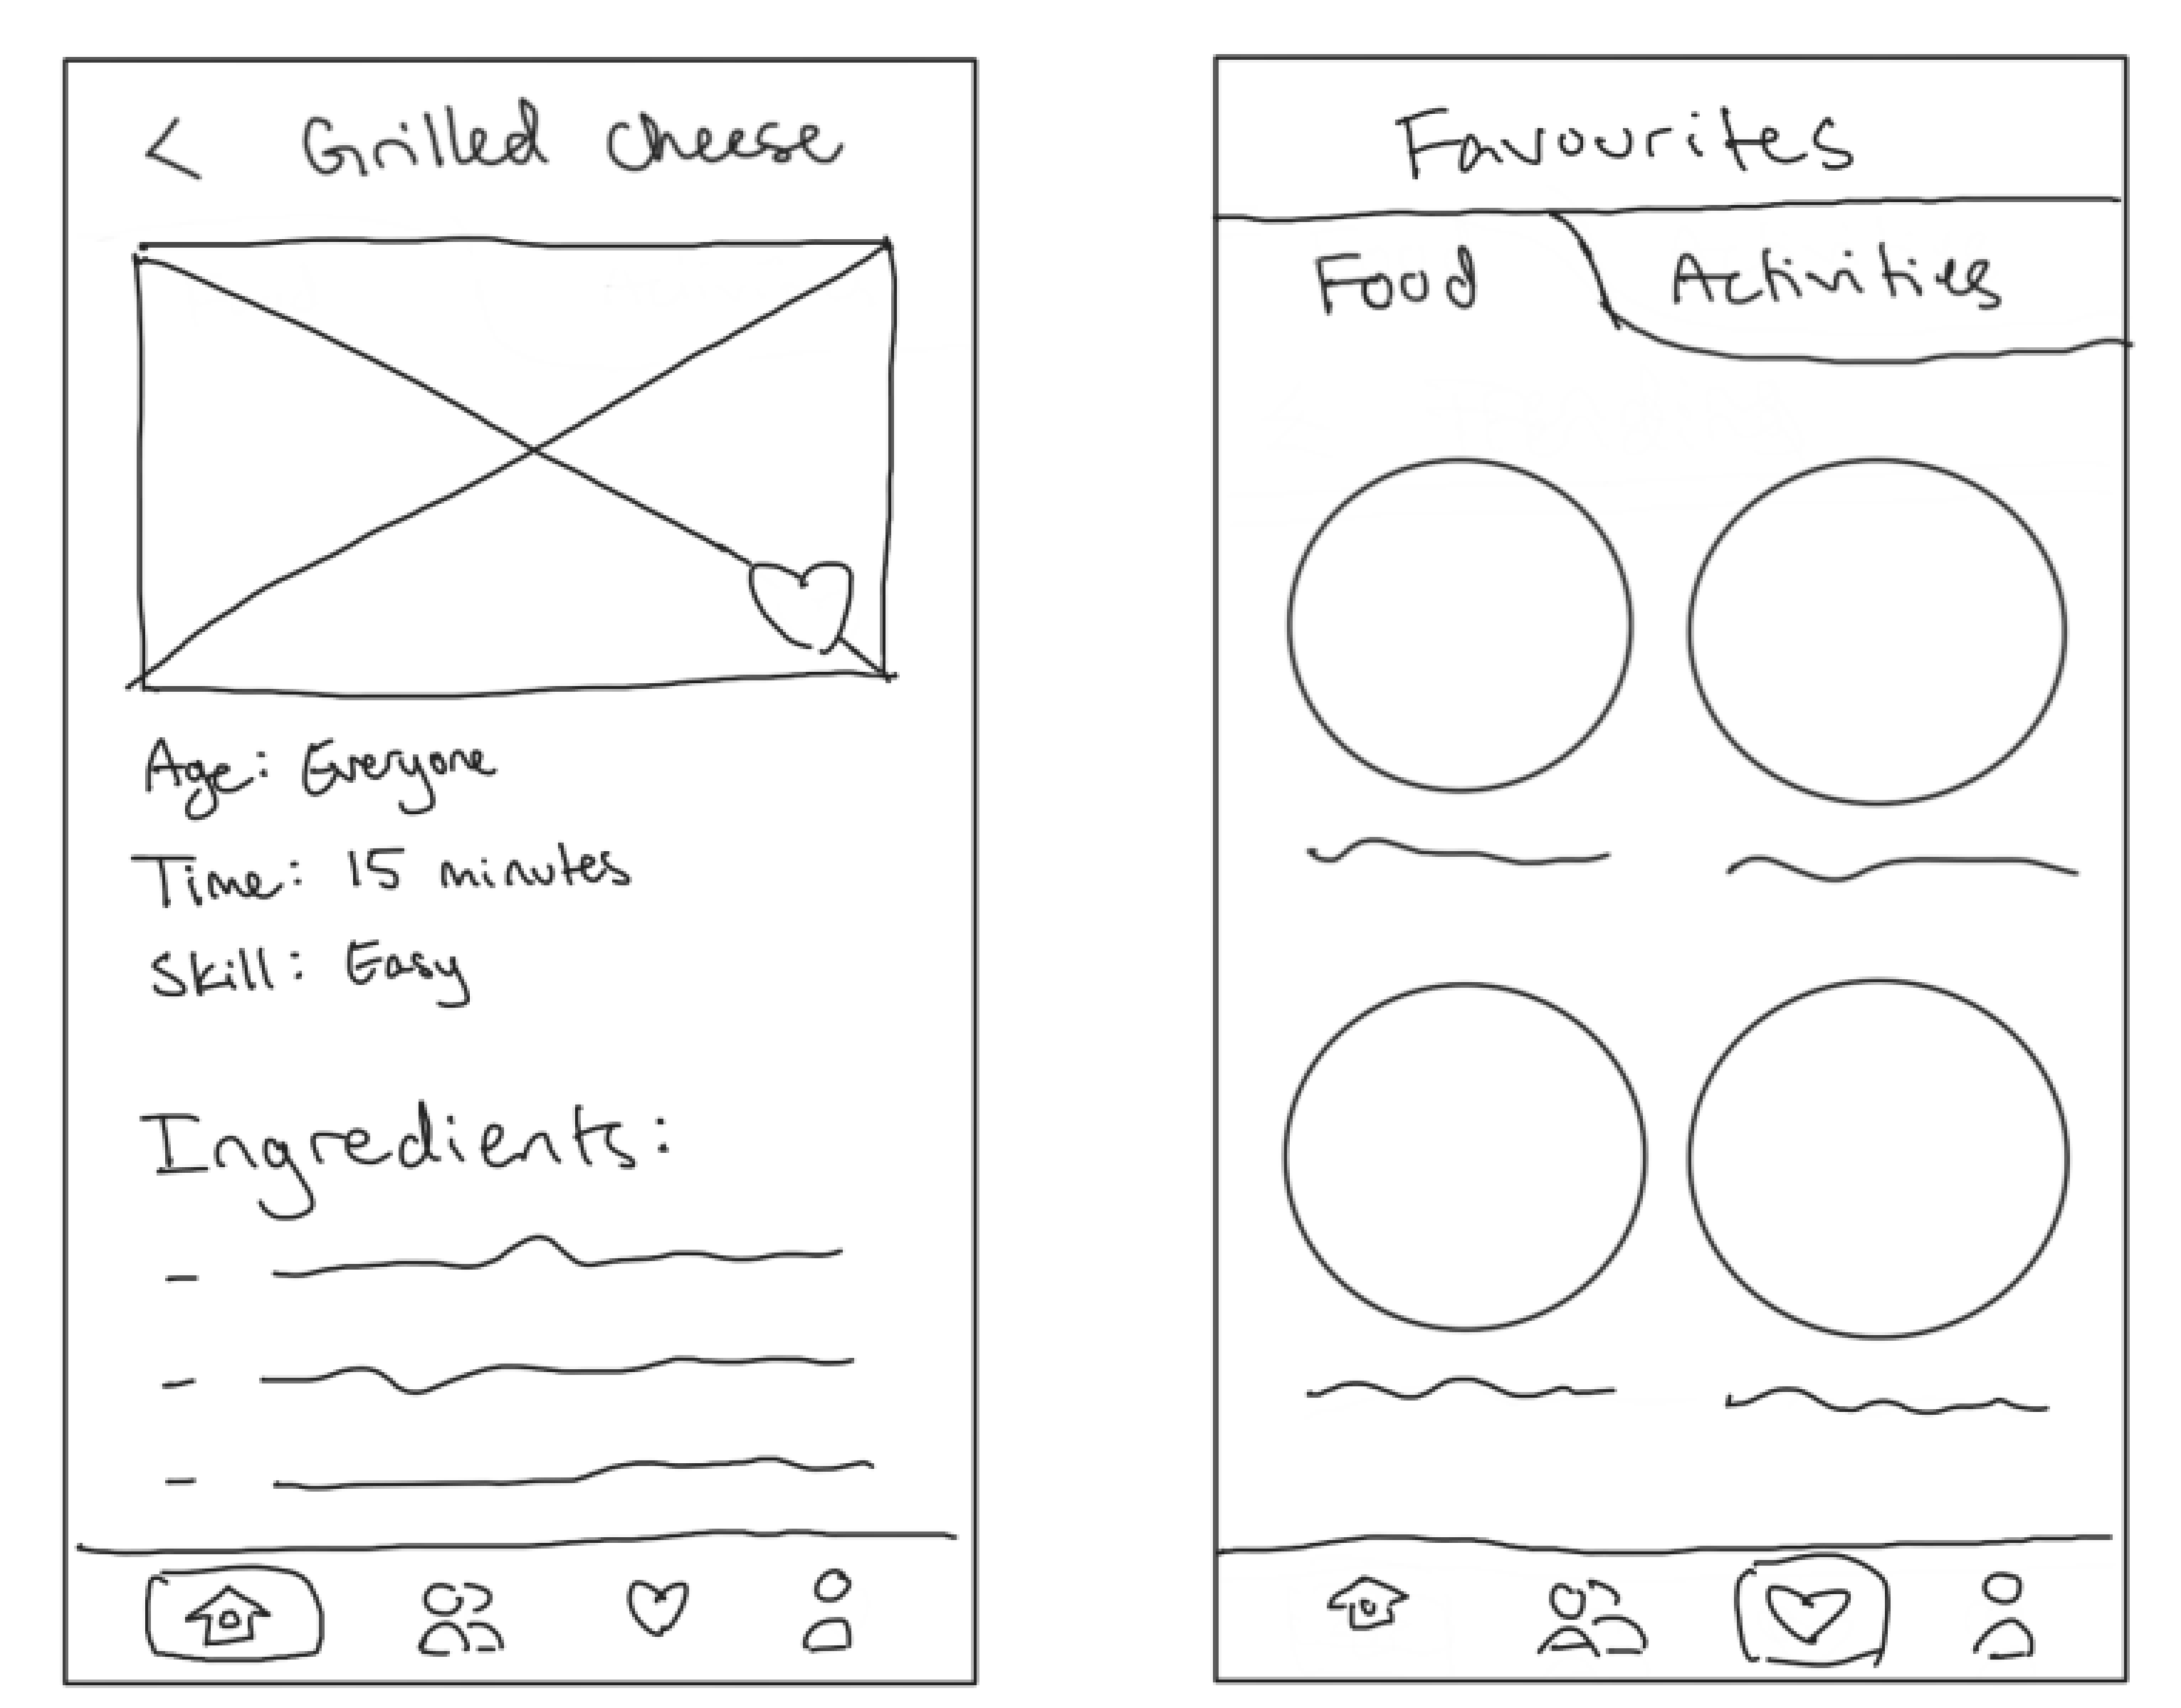 < Grilled cheese
Age: Everyone
Time: 15 minutes
Skill: Easy
Ingredients:
-
-
-
Favourites
Food Activities